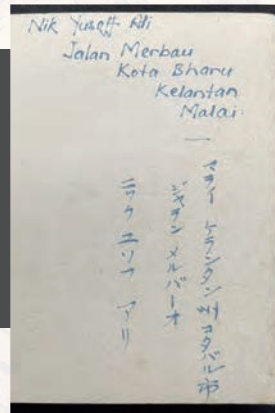 Nik Yusoff Ali
Jalan Merbau
Kota Bharu
Kelantan
Malai.
マライ ケランタン州コタバル市
ジャラン メルバーオ
ニック ユソフ アリ